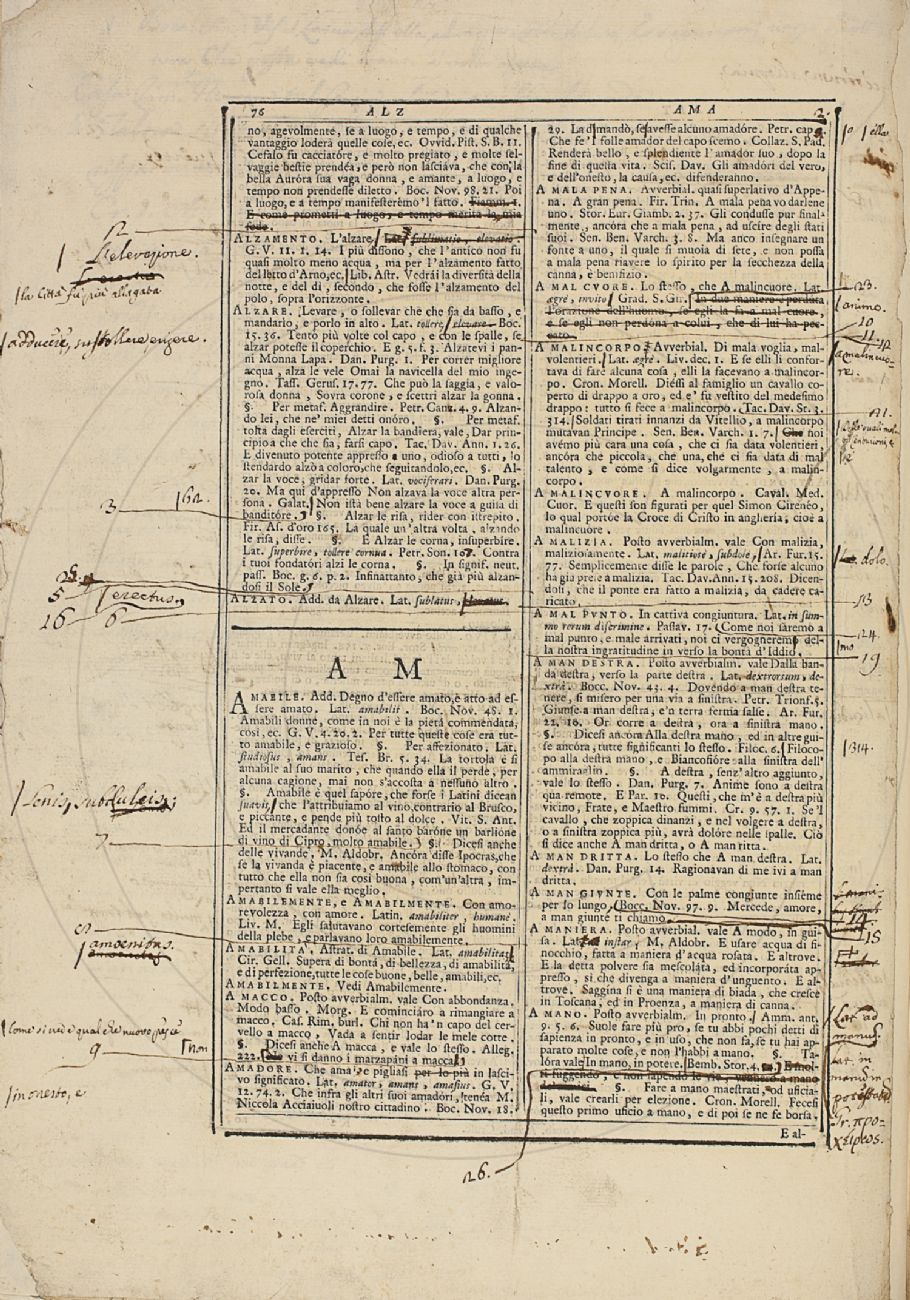 76 ALZ
no, agevolmente, se a luogo, e tempo, e di qualche
vantaggio loderà quelle cose, ec. Ovvid. Pist. S. B. 11.
Cefalo fu cacciatóre, e molto pregiato, e molte sel-
vaggie bestie prendéa, e però non lasciáva, che con la
bella Auróra sua vaga donna, e amante, a luogo, e
tempo non prendesse diletto. Boc. Nov. 98. 21. Poi
a luogo, e a tempo manifesterémo 'l fatto. Fiamm. 1.
E come promettì a luogo, e tempo meritá la mia
fede.
ALZAMENTO. L'alzare. Lat. sublimatio, elevatio.
G. V. 11. 1. 14. I più dissono, che l'antico non fu
quasi molto meno acqua, ma per l'alzamento fatto
del letto d'Arno, ec. Lib. Astr. Vedrái la diversità della
notte, e del dì, secondo, che fosse l'alzamento del
polo, sopra l'orizzonte.
ALZARE. Levare, o sollevar che che sia da basso, e
mandarlo, e porlo in alto. Lat. tollere, elevare. Boc.
15. 36. Tentò più volte col capo, e con le spalle, se
alzar potesse il coperchio. E g. 5. f. 3. Alzatevi i pan-
ni Monna Lapa. Dan. Purg. 1. Per correr migliore
acqua, alza le vele Omai la navicella del mio inge-
gno. Tass. Gerus. 17. 77. Che può la saggia, e valo-
rosa donna, Sovra corone, e scettri alzar la gonna.
§. Per metaf. Aggrandire. Petr. Canz. 4. 9. Alzan-
do lei, che ne' miei detti onóro. §. Per metaf.
tolta dagli eserciti, Alzar la bandiera, vale, Dar prin-
cipio a che che sia, farsi capo. Tac. Dav. Ann. 1. 26.
E divenuto potente appresso a uno, odioso a tutti, lo
stendardo alzò a coloro, che seguitandolo, ec. §. Al-
zar la voce, gridar forte. Lat. vociferari. Dan. Purg.
20. Ma qui d'appresso Non alzava la voce altra per-
sona. Galat. Non istà bene alzare la voce a guisa di
banditóre. §. Alzar le risa, rider con istrepito.
Fir. As. d'oro 165. La quale un'altra volta, alzando
le risa, disse. §. E Alzar le corna, insuperbire.
Lat. superbire, tollere cornua. Petr. Son. 107. Contra
i tuoi fondatóri alzi le corna. §. In signif. neut.
pass. Boc. g. 6. p. 2. Infinattanto, che già più alzan-
dosi il Sole.
ALZATO. Add. da Alzare. Lat. sublatus, elevatus.
A M
AMABILE. Add. Degno d'essere amato, e atto ad es-
sere amato. Lat. amabilis. Boc. Nov. 48. 1.
Amabili donne, come in noi è la pietà commendata,
così, ec. G. V. 4. 20. 2. Per tutte queste cose era tut-
to amabile, e grazioso. §. Per affezionato. Lat.
studiosus, amans. Tes. Br. 5. 34. La tortola è sì
amabile al suo marito, che quando ella il perde, per
alcuna cagione, mai non s'accosta a nessuno altro.
§. Amabile è quel sapóre, che forse i Latini dicean
suavis, che l'attribuiamo al vino, contrario al Brusco,
e piccante, e pende più tosto al dolce. Vit. S. Ant.
Ed il mercadante donóe al santo baróne un barlione
di vino di Cipro, molto amabile. §. Dicesi anche
delle vivande, M. Aldobr. Ancóra disse Ipocras, che
se la vivanda è piacente, e amabile allo stomaco, con
tutto che ella non sia così buona, com'un'altra, im-
pertanto si vale ella meglio.
AMABILEMENTE, e AMABILMENTE. Con amo-
revolezza, con amore. Latin. amabiliter, humanè.
Liv. M. Egli salutavano cortesemente gli huomini
della plebe, e parlavano loro amabilemente.
AMABILITÀ. Astrat. di Amabile. Lat. amabilitas.
Cir. Gell. Supera di bontà, di bellezza, di amabilità,
e di perfezione, tutte le cose buone, belle, amabili, ec.
AMABILMENTE. Vedi Amabilemente.
A MACCO. Posto avverbialm. vale Con abbondanza.
Modo basso. Morg. E cominciáro a rimangiare a
macco. Cas. Rim. burl. Chi non ha 'n capo del cer-
vello a macco, Vada a sentir lodar le mele cotte.
§. Dicesi anche A macca, e vale lo stesso. Alleg.
222. vi si danno i marzapáni a macca.
AMADORE. Che ama, e pigliasi per lo più in lasci-
vo significato. Lat. amator, amans, amasius. G. V.
12. 74. 2. Che infra gli altri suoi amadóri, tenéa M.
Niccola Acciaiuoli nostro cittadino. Boc. Nov. 18.
AMA 2.
29. La dimandò, se avesse alcuno amadóre. Petr. cap. 9.
Che fe' l folle amador del capo scemo. Collaz. S. Pad.
Renderà bello, e splendiente l'amadór suo, dopo la
fine di questa vita. Scif. Dav. Gli amadóri del vero,
e dell'onesto, la causa, ec. difenderanno.
A MALA PENA. Avverbial. quasi superlativo d'Appe-
na. A gran pena. Fir. Trin. A mala pena vo darlene
uno. Stor. Eur. Giamb. 2. 37. Gli condusse pur final-
mente, ancóra che a mala pena, ad uscire degli stati
suoi. Sen. Ben. Varch. 3. 8. Ma anco insegnare un
fonte a uno, il quale si muoia di sete, e non possa
a mala pena riavere lo spirito per la secchezza della
canna, è benifizio.
A MAL CUORE. Lo stesso, che A malincuore. Lat.
agrè, invito. Grad. S. Gir. In due maniere è perduta
l'orazione dell'huomo, se egli la fa a mal cuore,
e se egli non perdona a colui, che di lui ha pec-
cato.
A MALINCORPO. Avverbial. Di mala voglia, mal-
volentieri. Lat. agrè. Liv. dec. 1. E se elli li confor-
tava di fare alcuna cosa, elli la facevano a malincor-
po. Cron. Morell. Diessi al famiglio un cavallo co-
perto di drappo a oro, ed e' fu vestito del medesimo
drappo: tutto si fece a malincorpo. Tac. Dav. St. 3.
314. Soldati tirati innanzi da Vitellio, a malincorpo
mutavan Principe. Sen. Ben. Varch. 1. 7. Che noi
avémo più cara una cosa, che ci sia data volentieri,
ancóra che piccola, che una, che ci sia data di mal
talento, e come si dice volgarmente, a malin-
corpo.
A MALINCUORE. A malincorpo. Caval. Med.
Cuor. E questi son figurati per quel Simon Cirenéo,
lo qual portóe la Croce di Cristo in angheria; cioè a
malincuóre.
A MALIZIA. Posto avverbialm. vale Con malizia,
maliziosamente. Lat. malitiosè, subdolè, Ar. Fur. 15.
77. Semplicemente disse le parole, Che forse alcuno
ha già prese a malizia. Tac. Dav. Ann. 15. 208. Dicen-
dosi, che il ponte era fatto a malizia, da cadere ca-
ricato.
A MAL PUNTO. In cattiva congiuntura. Lat. in sum-
mo rerum discrimine. Passav. 17. Come noi sarémo a
mal punto, e male arrivati, noi ci vergogneremo del-
la nostra ingratitudine in verso la bontà d'Iddio.
A MAN DESTRA. Posto avverbialm. vale Dalla ban-
da destra, verso la parte destra. Lat. dextrorsum, de-
xtrâ. Bocc. Nov. 43. 4. Dovendo a man destra te-
nere, si misero per una via a sinistra. Petr. Trionf. 5.
Giunse a man destra, e'n terra ferma salse. Ar. Fur.
22. 16. Or corre a destra, ora a sinistra mano.
§. Dicesi ancóra Alla destra mano, ed in altre gui-
se ancóra, tutte significanti lo stesso. Filoc. 6. Filoco-
po alla destra mano, e Biancofióre alla sinistra dell'
ammiraglio. §. A destra, senz'altro aggiunto,
vale lo stesso. Dan. Purg. 7. Anime sono a destra
qua remote. E Par. 10. Questi, che m'è a destra più
vicino, Frate, e Maestro fummi. Cr. 9. 57. 1. Se'l
cavallo, che zoppica dinanzi, e nel volgere a destra,
o a sinistra zoppica più, avrà dolóre nelle spalle. Ciò
si dice anche A man dritta, o A man ritta.
A MAN DRITTA. Lo stesso che A man destra. Lat.
dextrâ. Dan. Purg. 14. Ragionavan di me ivi a man
dritta.
A MAN GIUNTE. Con le palme congiunte insiéme
per lo lungo. Bocc. Nov. 97. 9. Mercede, amore,
a man giunte ti chiamo.
A MANIERA. Posto avverbial. vale A modo, in gui-
sa. Lat. instar, M. Aldobr. E usare acqua di fi-
nocchio, fatta a maniera d'acqua rosata. E altrove.
E la detta polvere sia mescolata, ed incorporáta ap-
presso, si che divenga a maniera d'unguento. E al-
trove. Saggina si è una maniera di biada, che cresce
in Toscana, ed in Proenza, a maniera di canna.
A MANO. Posto avverbialm. In pronto. Amm. ant.
9. 5. 6. Suole fare più pro, se tu abbi pochi detti di
sapienza in pronto, e in uso, che non fa, se tu hai ap-
parato molte cose, e non l'habbi a mano. §. Ta-
lóra vale In mano, in potere. Bemb. Stor. 4. E mol-
§. Fare a mano maestrati, od uficia-
li, vale crearli per elezione. Cron. Morell. Fecesi
questo primo uficio a mano, e di poi se ne fe borsa.
E al-
elevazione.
la Città fu più allegata
adducere, sustollere, erigere.
3
5
erectus.
26 6
Lenis, subdulcis;
7
amoenitas.
come si vede qual che nuovo pesce
9 non
inonesto, e
26.
ella
23.
animo.
10
11. 12
a malincuo-
re.
21.
dolo.
13
24.
mo
19
314.
14
15
Lat. ad
manus.
Lat. in
manu, in
potestate
Gr. προ-
χείρως.